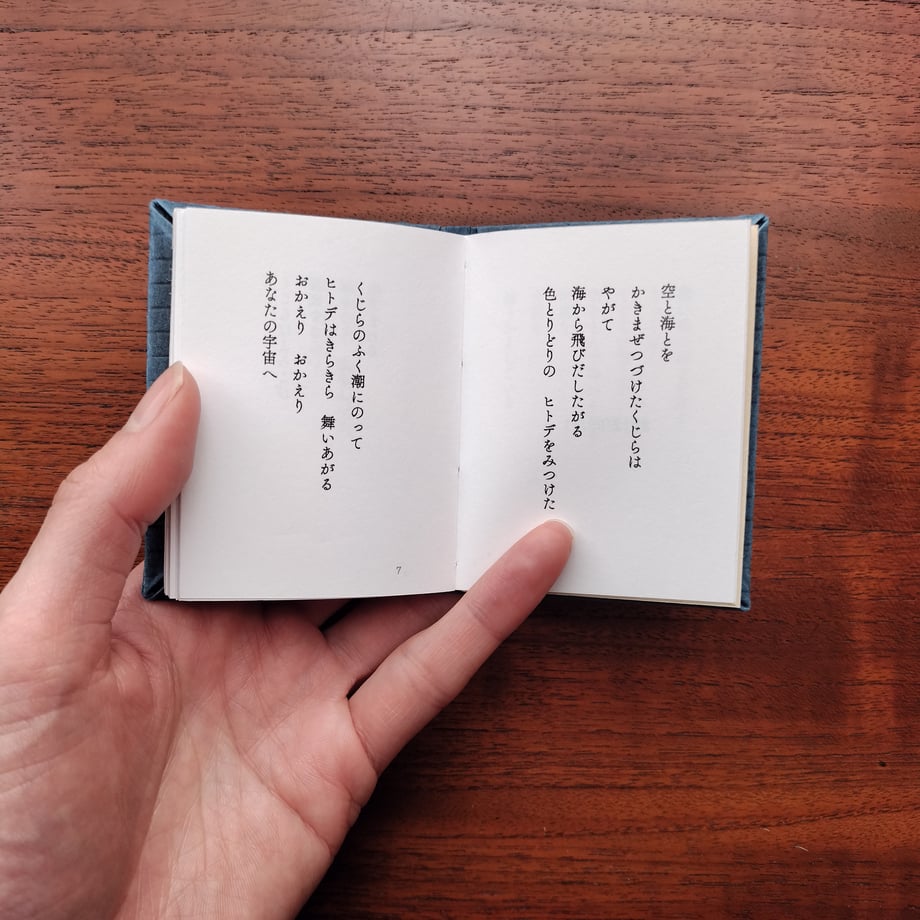 空と海とを
かきまぜつづけたくじらは
やがて
海から飛びだしたがる
色とりどりの　ヒトデをみつけた
くじらのふく潮にのって
ヒトデはきらきら　舞いあがる
おかえり　おかえり
あなたの宇宙へ
7